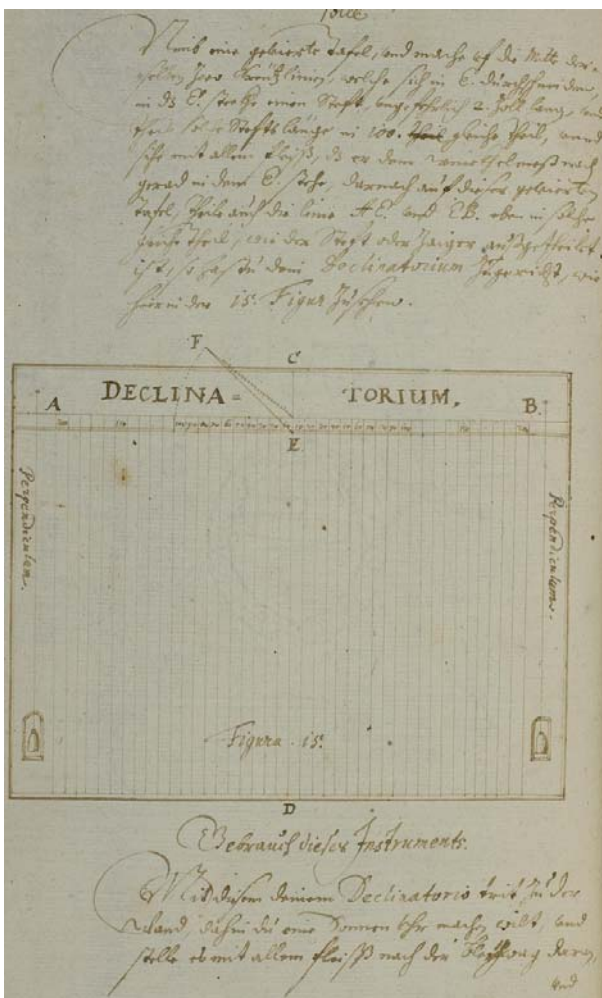 Nimb eine gebierte Tafel, und mache uf die Mitte der-
selben zwo Kreutzlinien, welche sich in E. durchschneiden,
in ds E. stecke einen Steft, ungefehrlich 2. Zoll lang, und
theile solche Steftslänge in 100. gleiche Theil, unnd
sihe mit allem fleiß, ds er dem winckelmeß nach
gerad in dem E. stehe, darnach auf dieser gebierten
Tafel, theile auch die linie A E. und E B. eben in solche
gleiche Theil, wie der Steft oder Zaiger außgetheilt
ist, so hastu dein Declinatorium zugericht, wie
hier in der 15. Figur zusehen.
F
C
DECLINA= TORIUM.
A B.
E
Perpendiculum.
Perpendiculum.
Figura 15.
D
Gebrauch dieses Instruments.
Mit diesem deinem Declinatorio trit zu der
Wand, dahin du eine Sonnen Uhr machen wilt, und
stelle es mit allem fleiß nach der Bleywag daran,
und